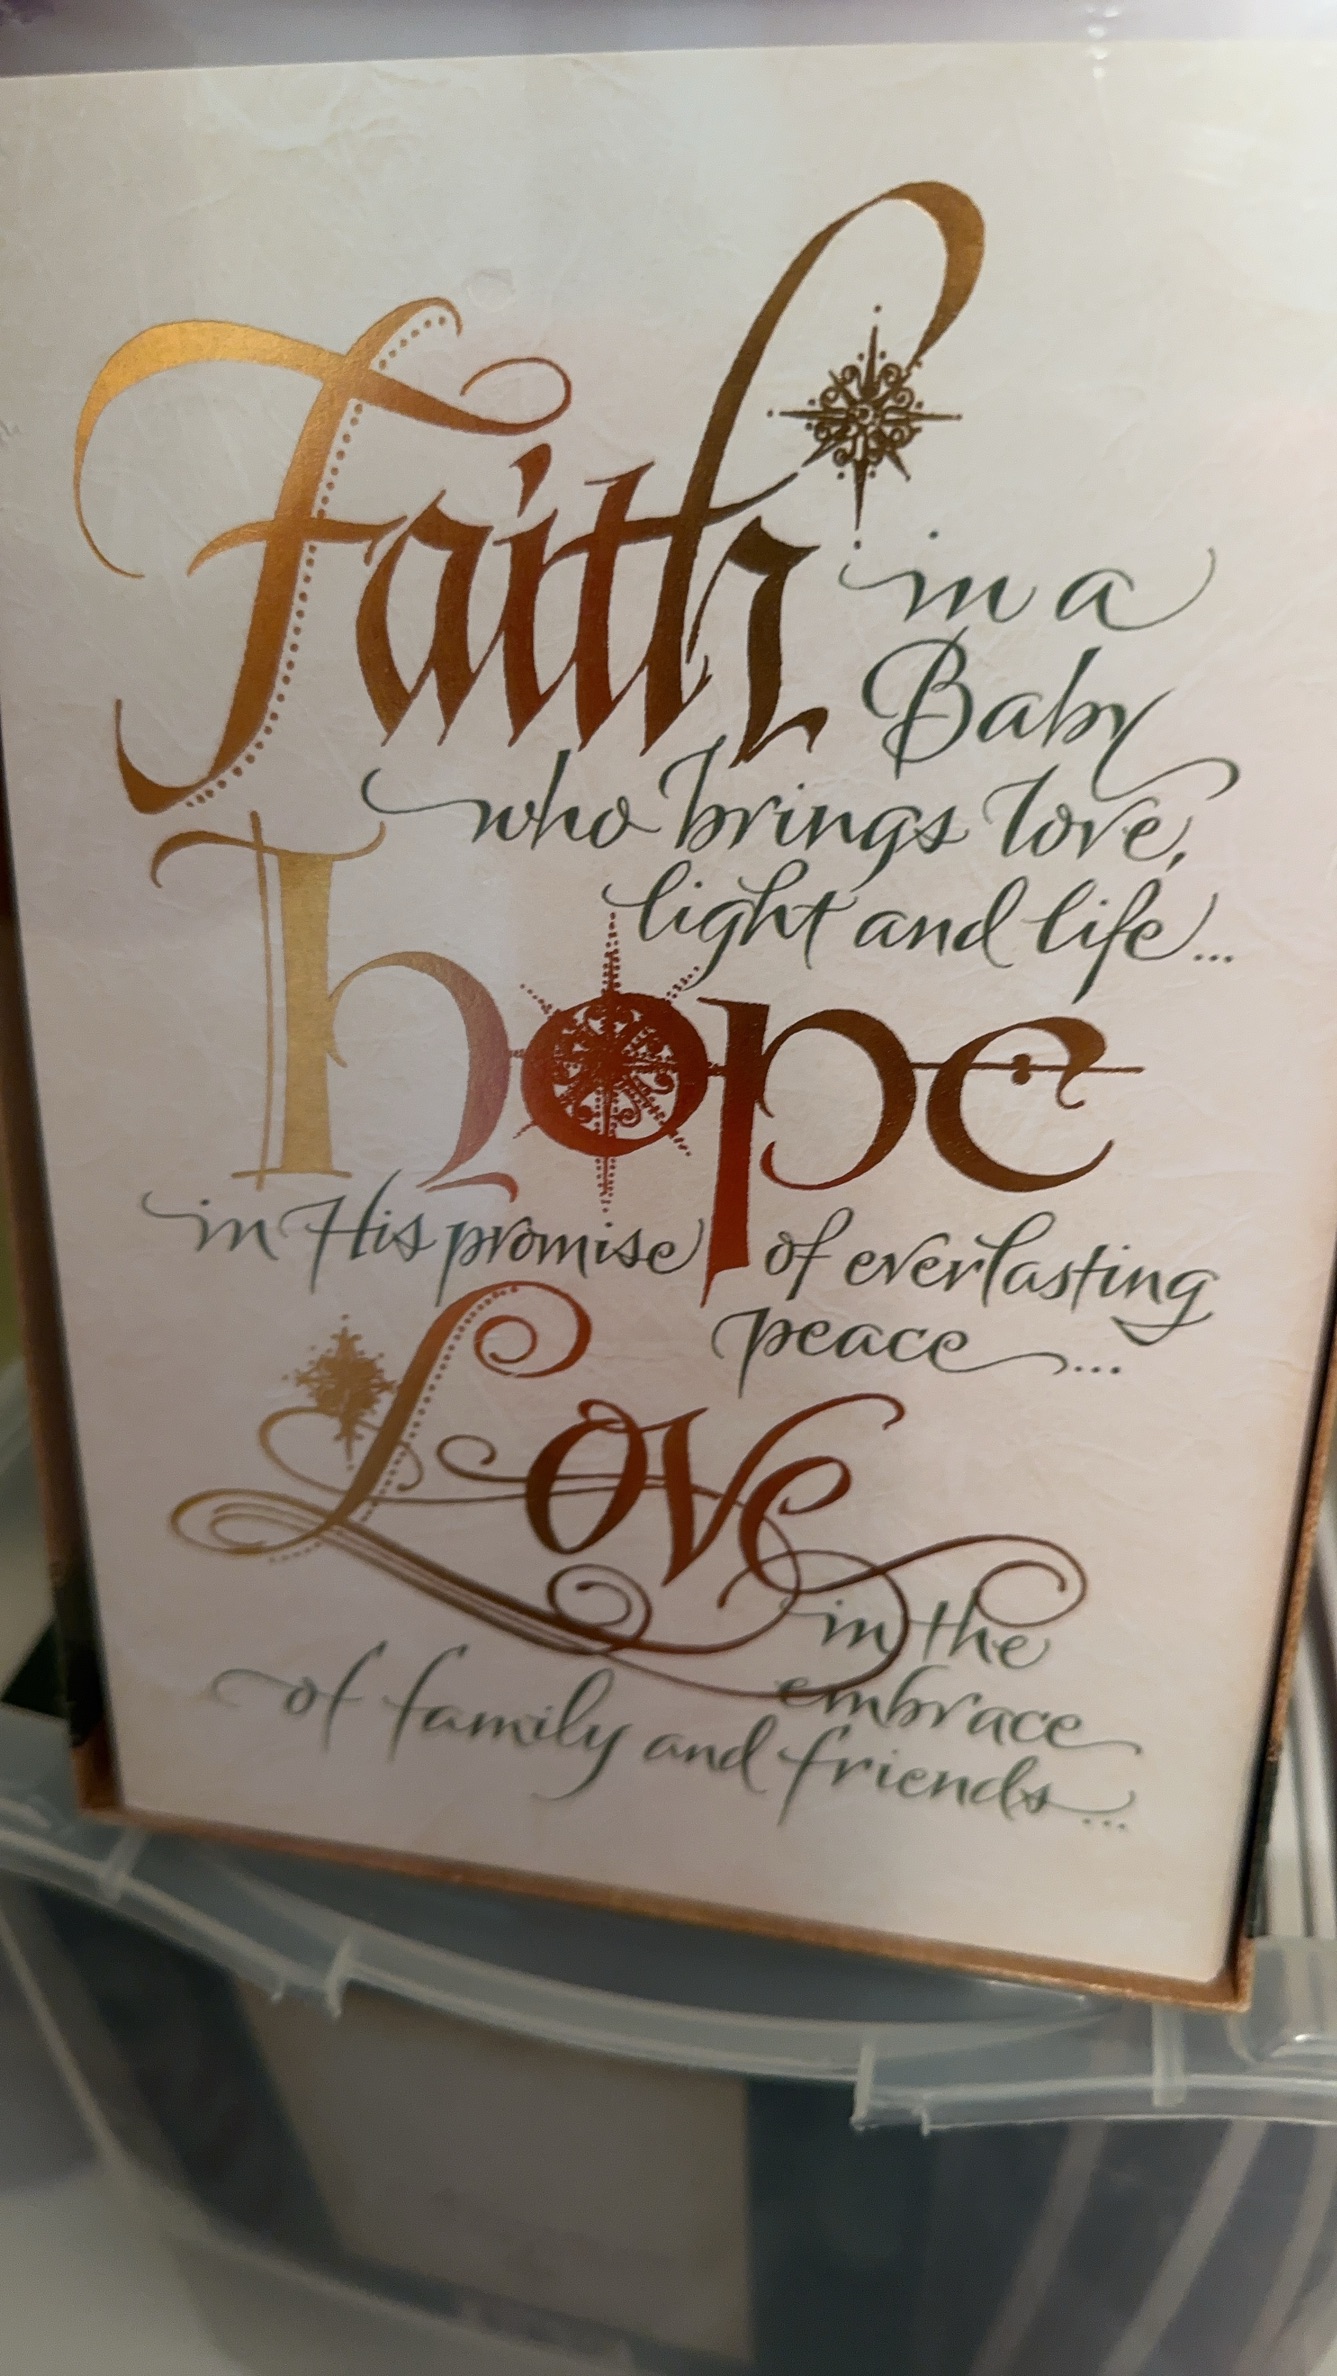 Faith in a
Baby
who brings love,
light and life...
hope
in His promise of everlasting
peace...
Love
in the
embrace
of family and friends...